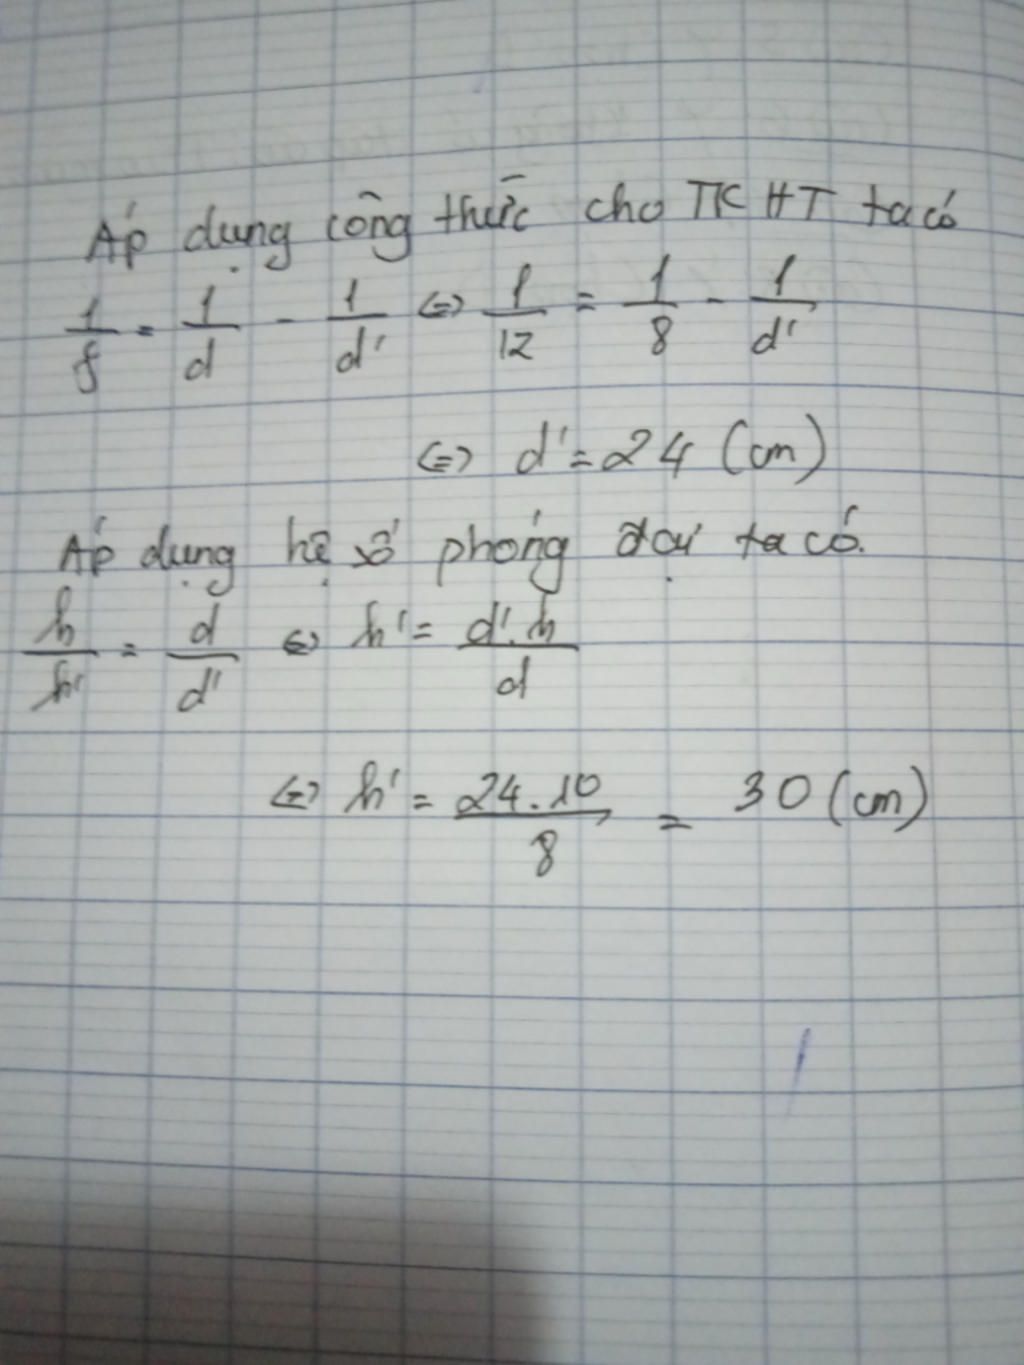 Áp dụng công thức cho TKHT ta có
1/f = 1/d - 1/d' <=> 1/12 = 1/8 - 1/d'
<=> d' = 24 (cm)
Áp dụng hệ số phóng đại ta có.
h/h' = d/d' <=> h' = d'.h/d
<=> h' = 24.10/8 = 30 (cm)